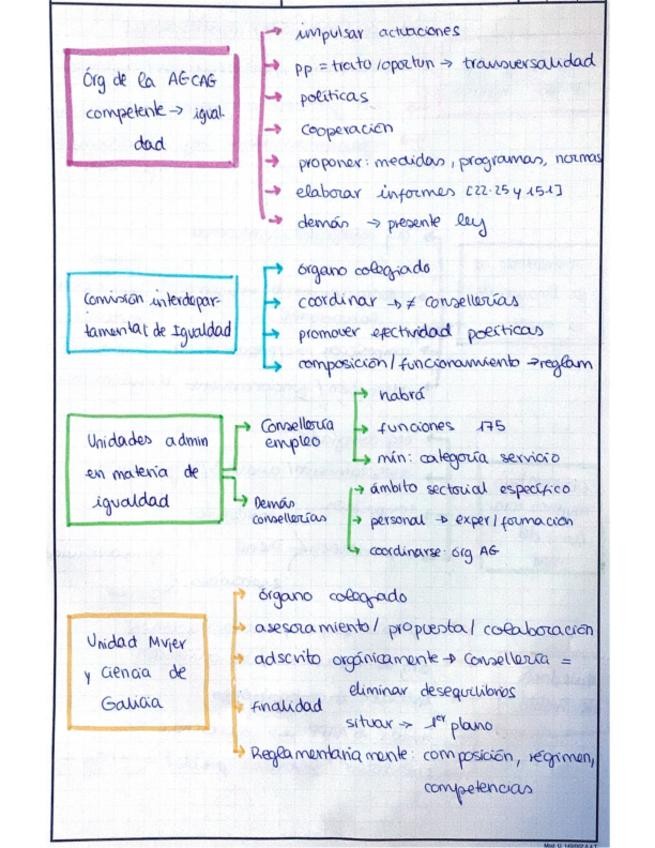 Órg de la AGCAG
competente → igual
dad
impulsar actuaciones
pp = trato/oportun → transversalidad
políticas
cooperación
proponer: medidas, programas, normas
elaborar informes [22·25 y 151]
demás → presente ley
Comisión interdepar-
tamental de Igualdad
órgano colegiado
coordinar → ≠ consellerías
promover efectividad políticas
composición/funcionamiento → reglam
Unidades admin
en materia de
igualdad
Consellería
empleo
habrá
funciones 175
mín: categoría servicio
Demás
consellerías
ámbito sectorial específico
personal → exper/formación
coordinarse órg AG
Unidad Mujer
y Ciencia de
Galicia
órgano colegiado
asesoramiento/ propuesta/ colaboración
adscrito orgánicamente → Consellería =
finalidad
eliminar desequilibros
situar → 1er plano
Reglamentariamente: composición, régimen,
competencias